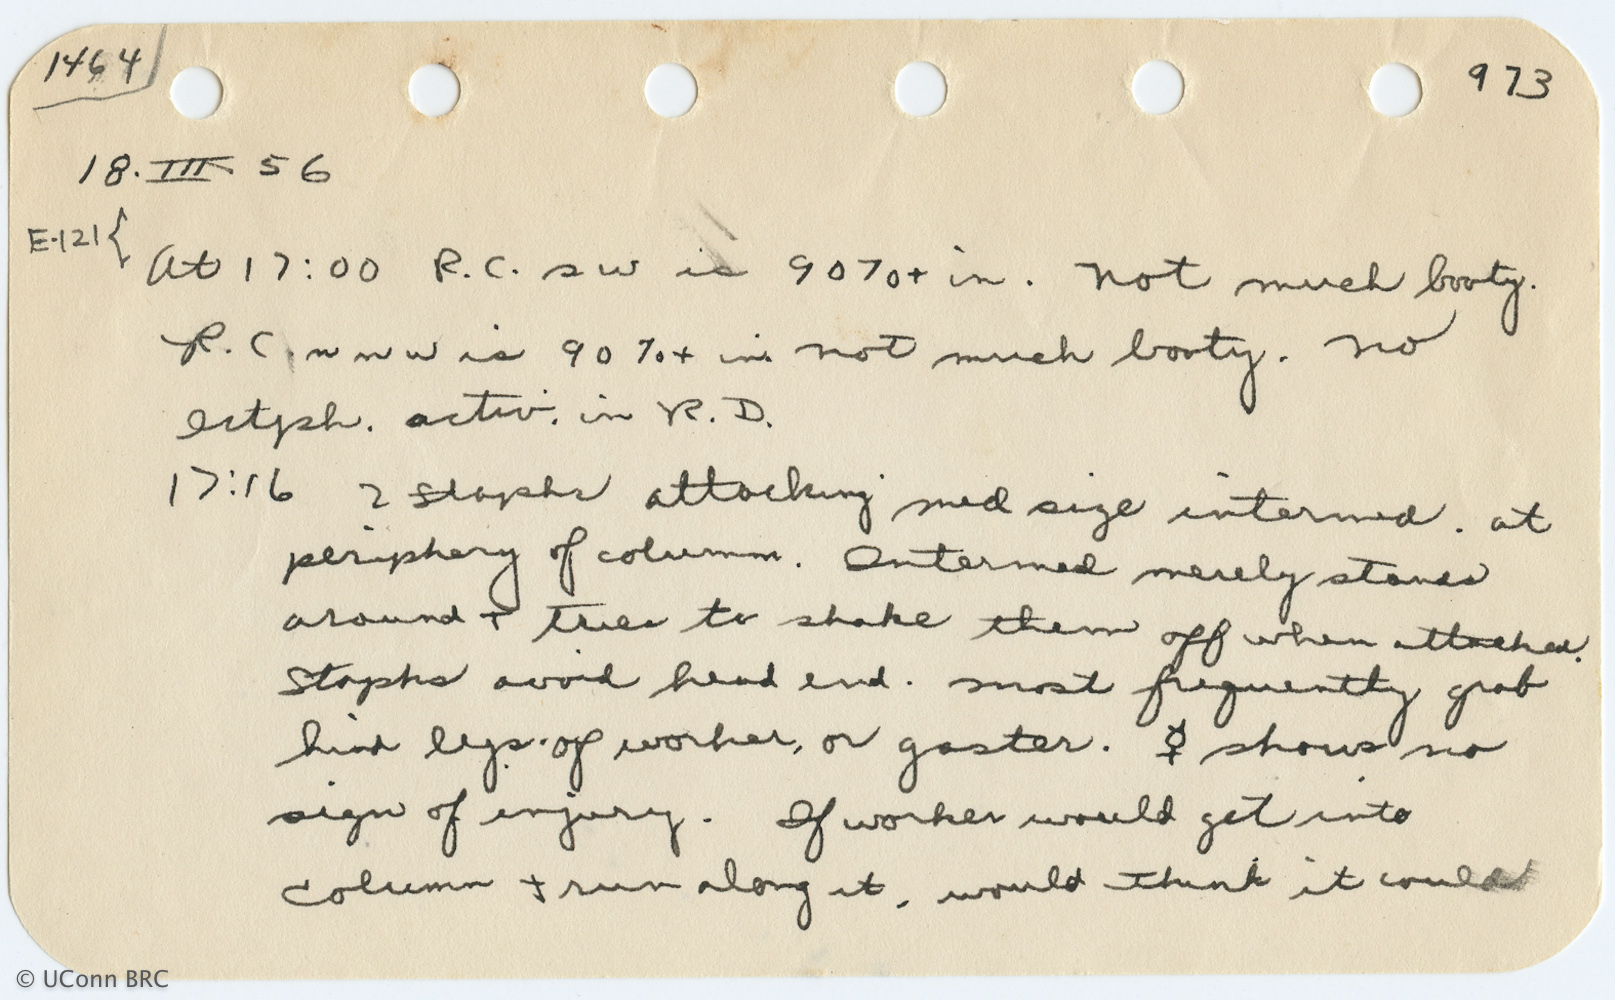 1464
973
18. III 56
E-121 {
At 17:00 R.C. sw is 90%+ in. Not much booty.
R.C. nnw is 90%+ in. not much booty. No
ectph. activ. in R.D.
17:16 2 staphs attacking med size intermed. at
periphery of column. Intermed merely stands
around + tries to shake them off when attacked.
Staphs avoid head end. most frequently grab
hind legs of worker, or gaster. ☿ shows no
sign of injury. If worker would get into
column + run along it, would think it could
© UConn BRC